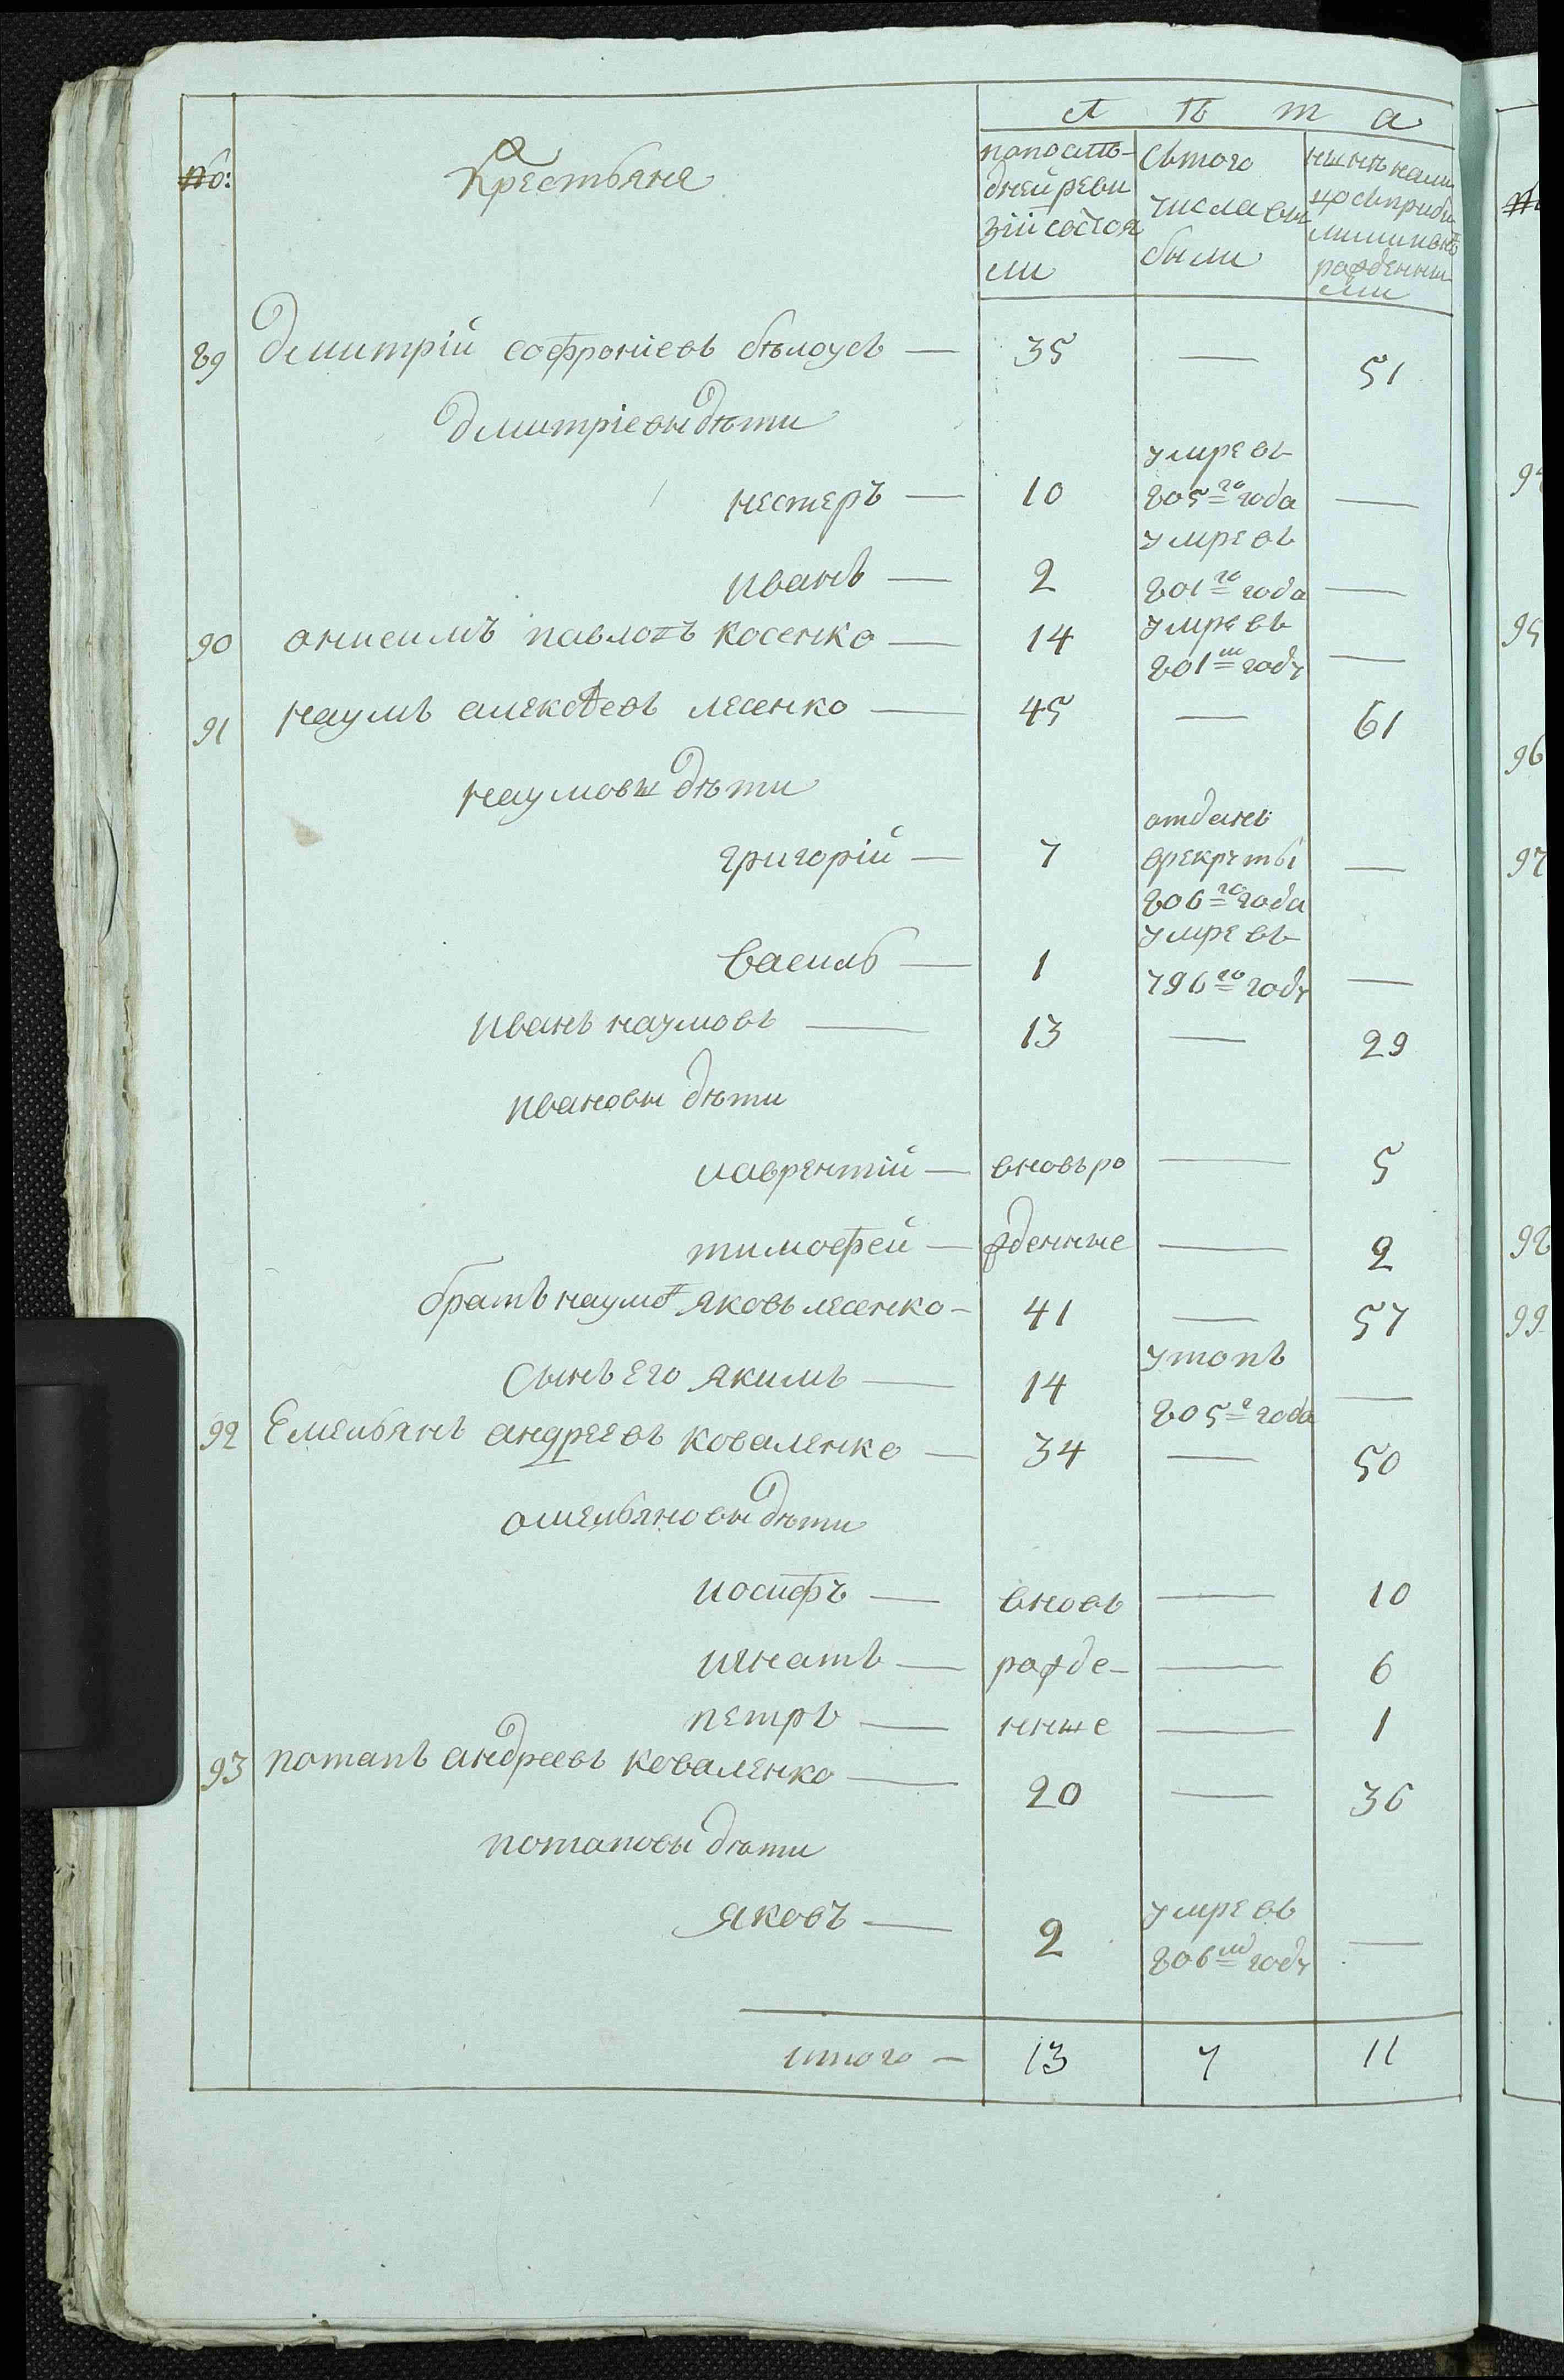 Л ѣ т а
№:
Крестьяне
попослѣ-
дней реви
зіи состоя
ли
сътого
числа вы
были
нынѣ нали
цо съприбы
лыми и внѣ
рожденны
ми
89 Дмитрій софроніевъ бѣлоусъ — 35 — 51
Дмитріевы дѣти
нестеръ — 10 умре въ 805го года —
иванъ — 2 умре въ 801го года —
90 онисимъ павловъ косенко — 14 умре въ 801м году —
91 наумъ алексѣевъ лесенко — 45 — 61
наумовы дѣти
григорій — 7 отданъ врекруты 806го года —
василь — 1 умре въ 796го году —
иванъ наумовъ — 13 — 29
ивановы дѣти
лаврентій — вновь ро — 5
тимофей — жденные — 2
братъ наумa яковъ лесенко — 41 — 57
Сынъ его якимъ — 14 утопъ 805г года —
92 Емельянъ андреевъ коваленко — 34 — 50
омельяновы дѣти
иосифъ — вновь — 10
игнатъ — рожде- — 6
петръ — нные — 1
93 потапъ андреевъ коваленко — 20 — 36
потаповы дѣти
яковъ — 2 умре въ 806м году —
итого — 13 7 11
№
94
95
96
97
98
99